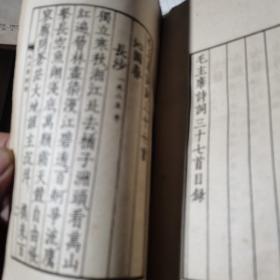 毛主席詩詞三十七首目錄
沁園春
長沙
獨立寒秋湘江北去橘子洲頭看萬山
紅遍層林盡染漫江碧透百舸爭流鷹
擊長空魚翔淺底萬類霜天競自由悵
寥廓問蒼茫大地誰主沉浮 攜來百